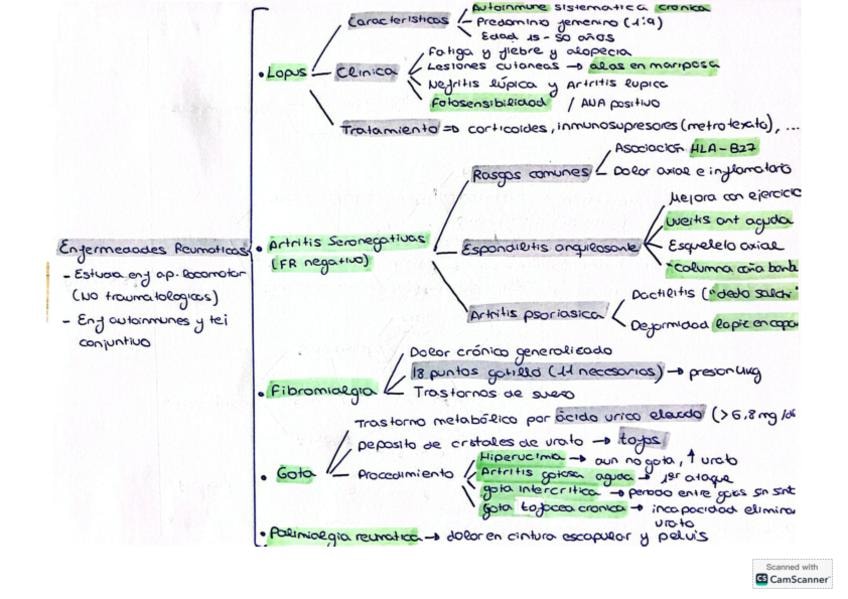 Enfermedades Reumaticas
- Estudia enf ap. locomotor
(NO traumatologicas)
- Enf autoinmunes y tej
conjuntivo
• Lupus
Caracteristicas
Autoinmune sistematica cronica
- Predominio femenino (1:9)
Edad 15-50 años
Clinica
Fatiga y fiebre y alopecia
Lesiones cutaneas → alas en mariposa
Nefritis lúpica y Artritis lupica
Fotosensibilidad / ANA positivo
Tratamiento => corticoides, inmunosupresores (metrotexato), ...
• Artritis Seronegativas
(FR negativo)
Rasgos comunes
Asociacion HLA-B27
Dolor axial e inflamatorio
Espondilitis anquilosante
Mejora con ejercicio
Uveitis ant aguda
Esqueleto axial
"columna caña
Artritis psoriasica
Dactilitis ("dedo salchi"
Deformidad lapiz en copa
• Fibromialgia
Dolor crónico generalizado
18 puntos gatillo (11 necesarios) → presion 4kg
Trastornos de sueño
• Gota
Trastorno metabólico por ácido urico elevado (>6,8 mg/dl
Deposito de cristales de urato → tofos
Procedimiento
Hiperucima → aun no gota, ↑ urato
Artritis gotosa aguda → 1er ataque
gota intercritica → periodo entre gotas sin sint
Gota tofacea cronica → incapacidad eliminar
urato
• Polimialgia reumatica → dolor en cintura escapular y pelvis
Scanned with
CS CamScanner